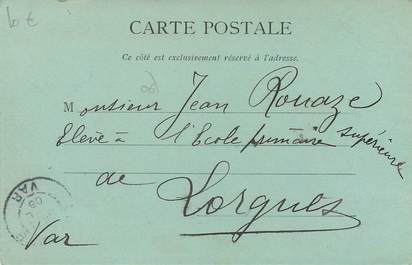 10 €
CARTE POSTALE
Ce côté est exclusivement réservé à l'adresse.
Monsieur Jean Rouaze
Elève à l'Ecole primaire supérieure
de
Lorgues
Var
VAR